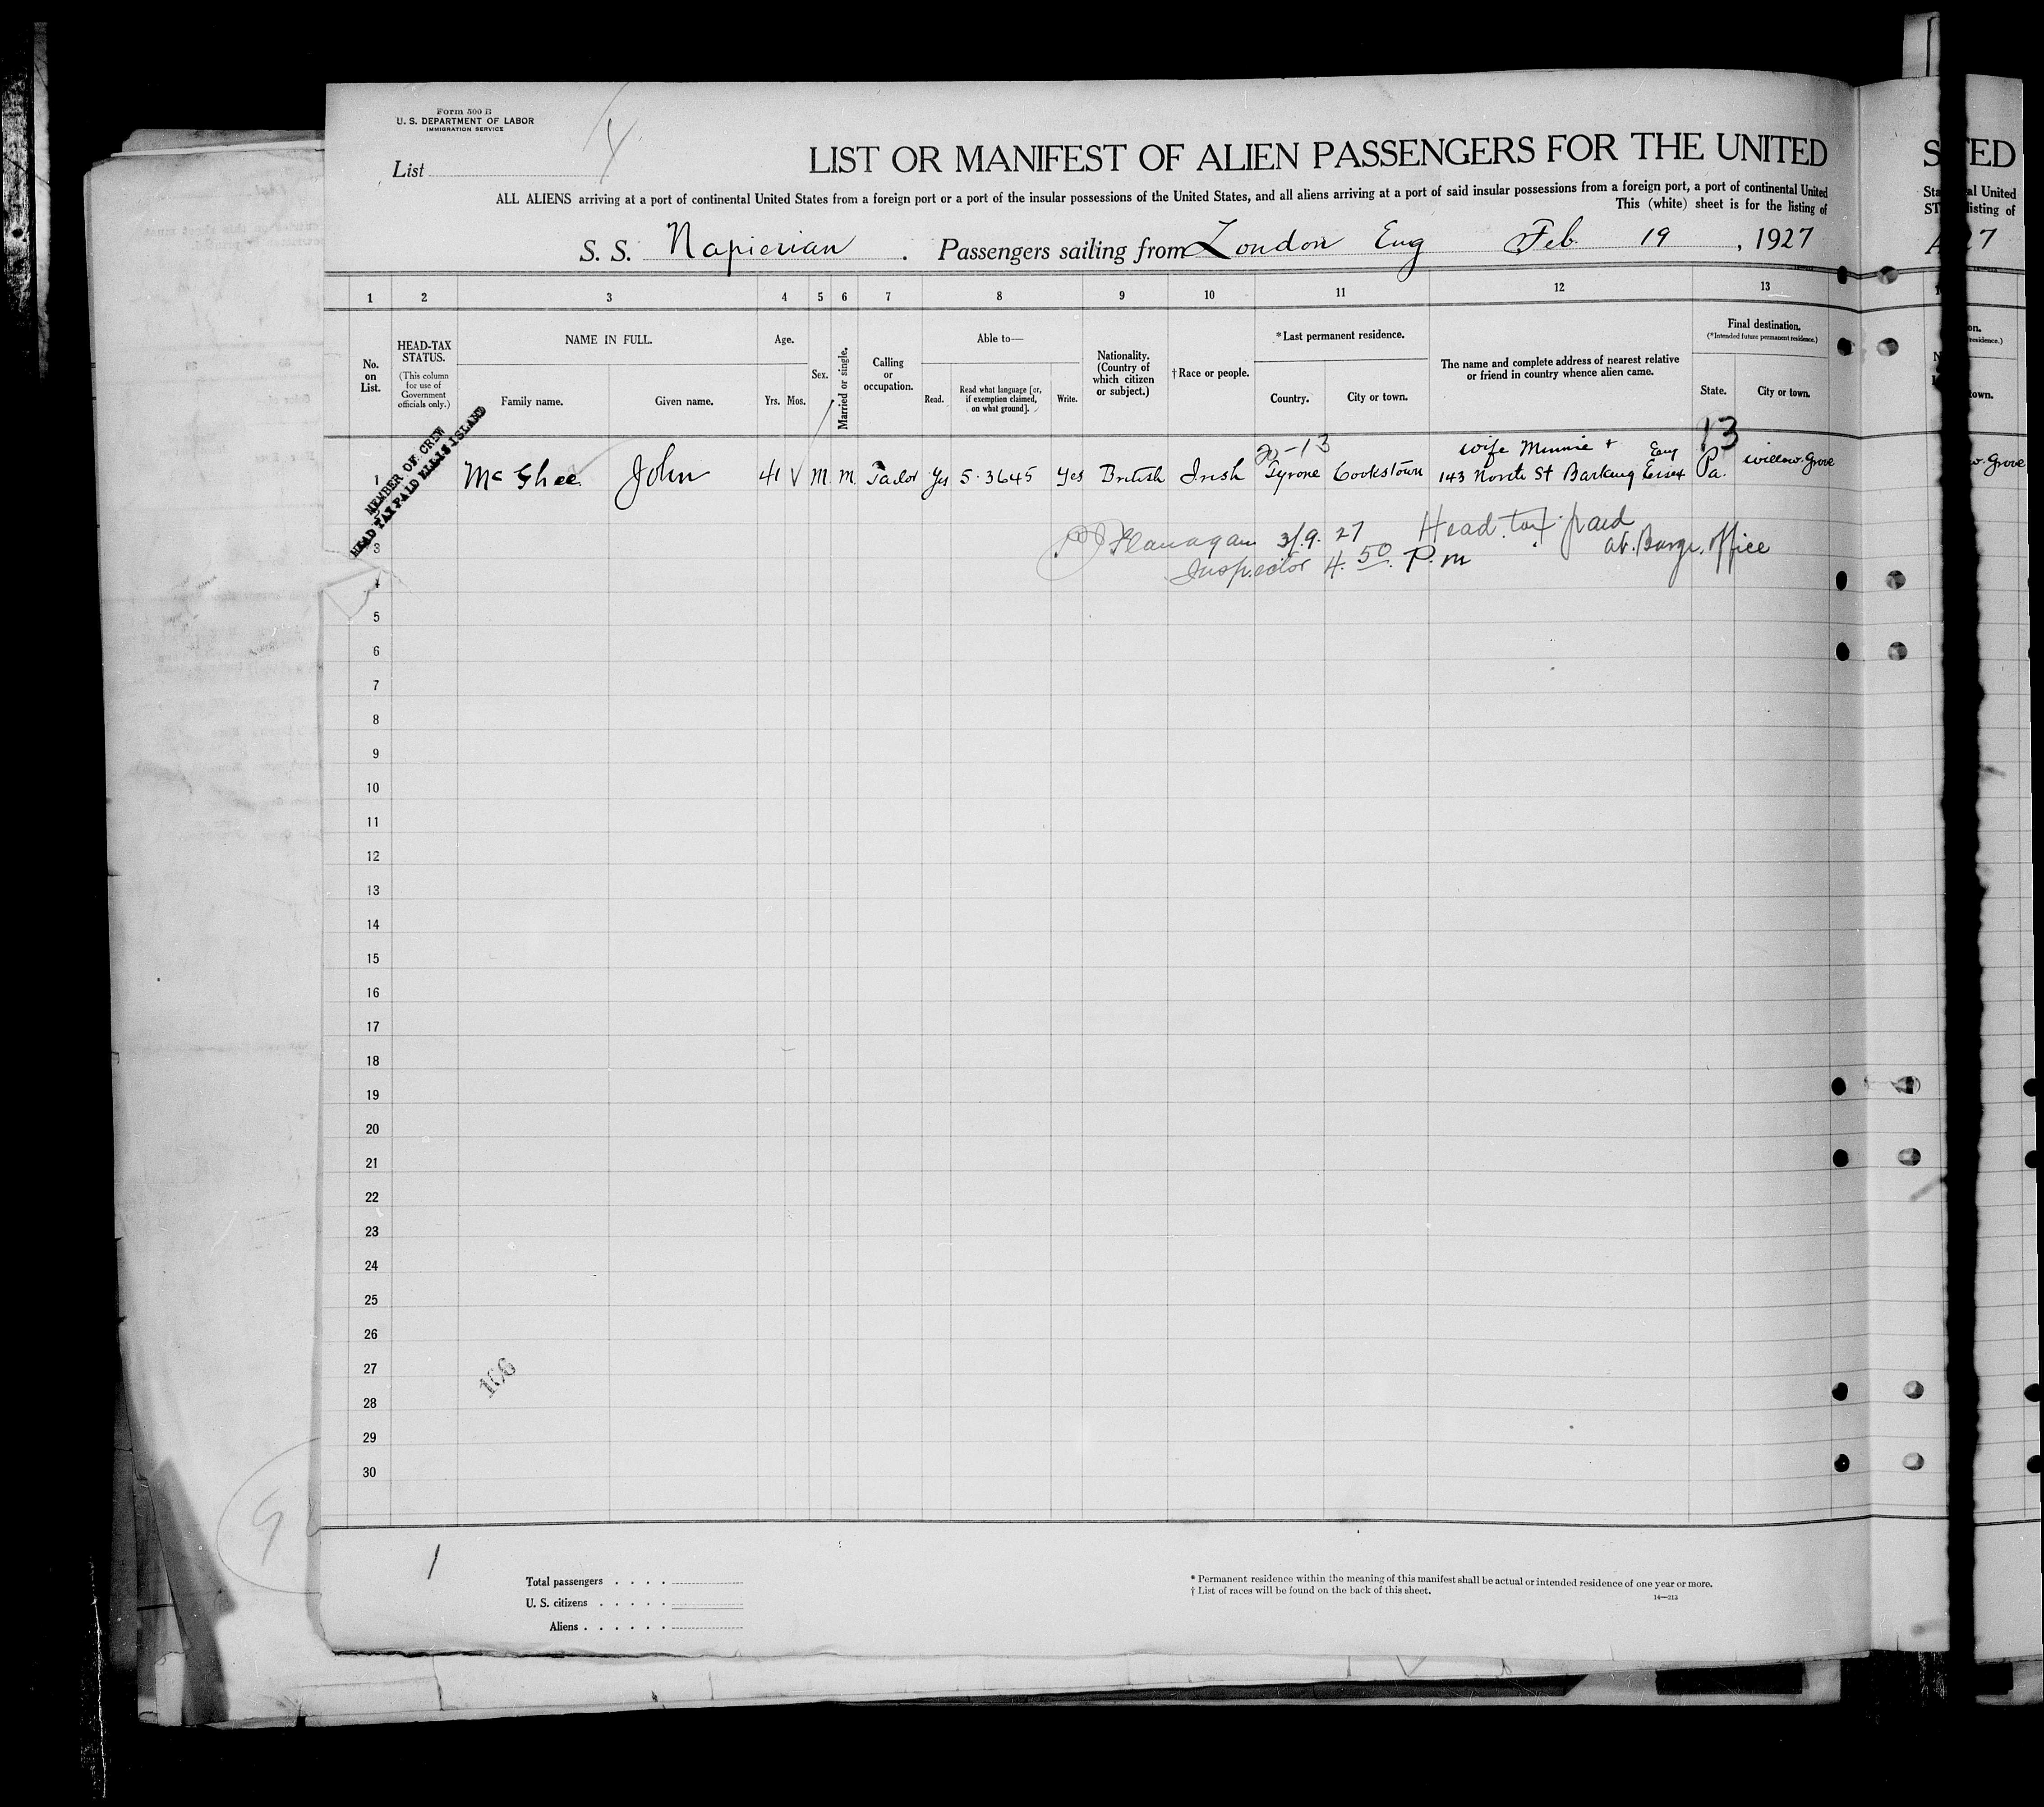 Form 500 B
U. S. DEPARTMENT OF LABOR
IMMIGRATION SERVICE
List
LIST OR MANIFEST OF ALIEN PASSENGERS FOR THE UNITED
ALL ALIENS arriving at a port of continental United States from a foreign port or a port of the insular possessions of the United States, and all aliens arriving at a port of said insular possessions from a foreign port, a port of continental United
This (white) sheet is for the listing of
S. S. Napierian . Passengers sailing from London Eng Feb. 19 , 1927
1 2 3 4 5 6 7 8 9 10 11 12 13
No. on List.
HEAD-TAX STATUS.
(This column for use of Government officials only.)
NAME IN FULL.
Family name. Given name.
Age.
Yrs. Mos.
Sex.
Married or single.
Calling or occupation.
Able to—
Read. Read what language [or, if exemption claimed, on what ground]. Write.
Nationality. (Country of which citizen or subject.)
†Race or people.
*Last permanent residence.
Country. City or town.
The name and complete address of nearest relative or friend in country whence alien came.
Final destination.
(*Intended future permanent residence.)
State. City or town.
MEMBER OF CREW
HEAD TAX PAID ELLIS ISLAND
20-13 wife Minnie + Eng 13
1 McGhee John 41 V M. M. Tailor Yes 5-3645 Yes British Irish Tyrone Cookstown 143 North St Barking Essex Pa. Willow Grove
Flanagan 3/9.27 Head tax paid
Inspector 4.50 P.m at. Barge. office
3
4
5
6
7
8
9
10
11
12
13
14
15
16
17
18
19
20
21
22
23
24
25
26
27
28
29
30
106
1
Total passengers . . . .
U. S. citizens . . . . .
Aliens . . . . . .
* Permanent residence within the meaning of this manifest shall be actual or intended residence of one year or more.
† List of races will be found on the back of this sheet.
14—213
9